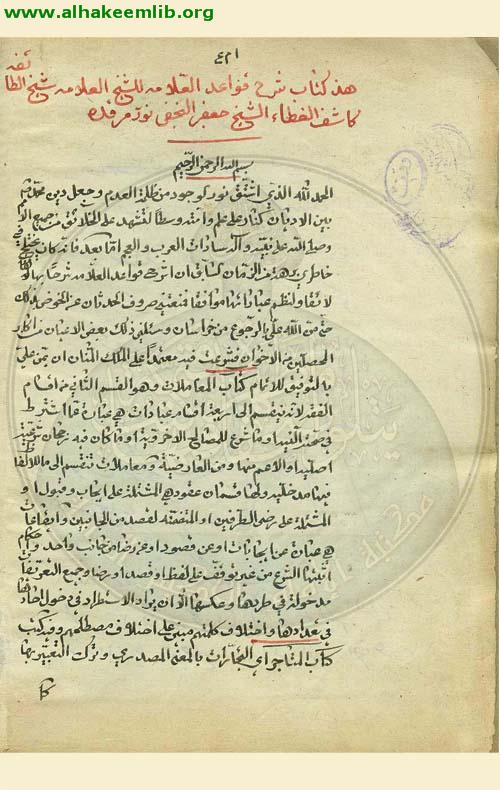 www.alhakeemlib.org
٤٢١
هذ كتاب شرح قواعد العلامه للشيخ العلامه شيخ الطائفه
كاشف الغطاء الشيخ جعفر النجفي نور مرقده
بسم الله الرحمن الرحيم
الحمد لله الذي اشتق نور الوجود من ظلمة العدم وجعل دين محمد
بين الاديان كنار على علم وامته وسطا لتشهد على الخلائق من جميع الامم
وصلى الله على نبيه وآله سادات العرب والعجم اما بعد فانه كان يختلج في
خاطري برهة من الزمان السابق ان اشرح قواعد العلامه شرحا
لائقا وانظم عباراتها موافقا فمنعتني صروف الحدثان عن الخوض كذلك
حتى من الله علي بالرجوع من خراسان وسئلني ذلك بعض الاعيان من اكابر
المحصلين من الاخوان فشرعت فيه معتمدا على الملك المنان ان يمن علي
بالتوفيق للاتمام كتاب المعاملات وهو القسم الثاني من اقسام
الفقه لانه ينقسم الى اربعة اقسام عبادات هي عبارة عما اشترط
في صحته النية او ما شرع للمصالح الاخروية او ما كان فيه رجحان
اصلية او الاعم منها ومن العارضية ومعاملات تنقسم الى ما للالفاظ
فيها مدخلية ولها قسمان عقود هي المشتملة على ايجاب وقبول او
المشتملة على رضى الطرفين او المتضمنة لقصد من الجانبين وايقاعات
هي عبارة عن ايجابات او عن قصود او عن رضا من جانب واحد واحكام
اثبتها الشرع من غير توقف على لفظ او قصد او رضا وجميع التعريفات
مدخولة في طردها وعكسها الا ان يراد الاستطراد في دخول
في تعدادها واختلاف كلمتهم مبني على اختلاف مصطلحهم وفيه كتب
كتاب المتاجر اي التجارات بالمعنى المصدري وترك التعبير بها